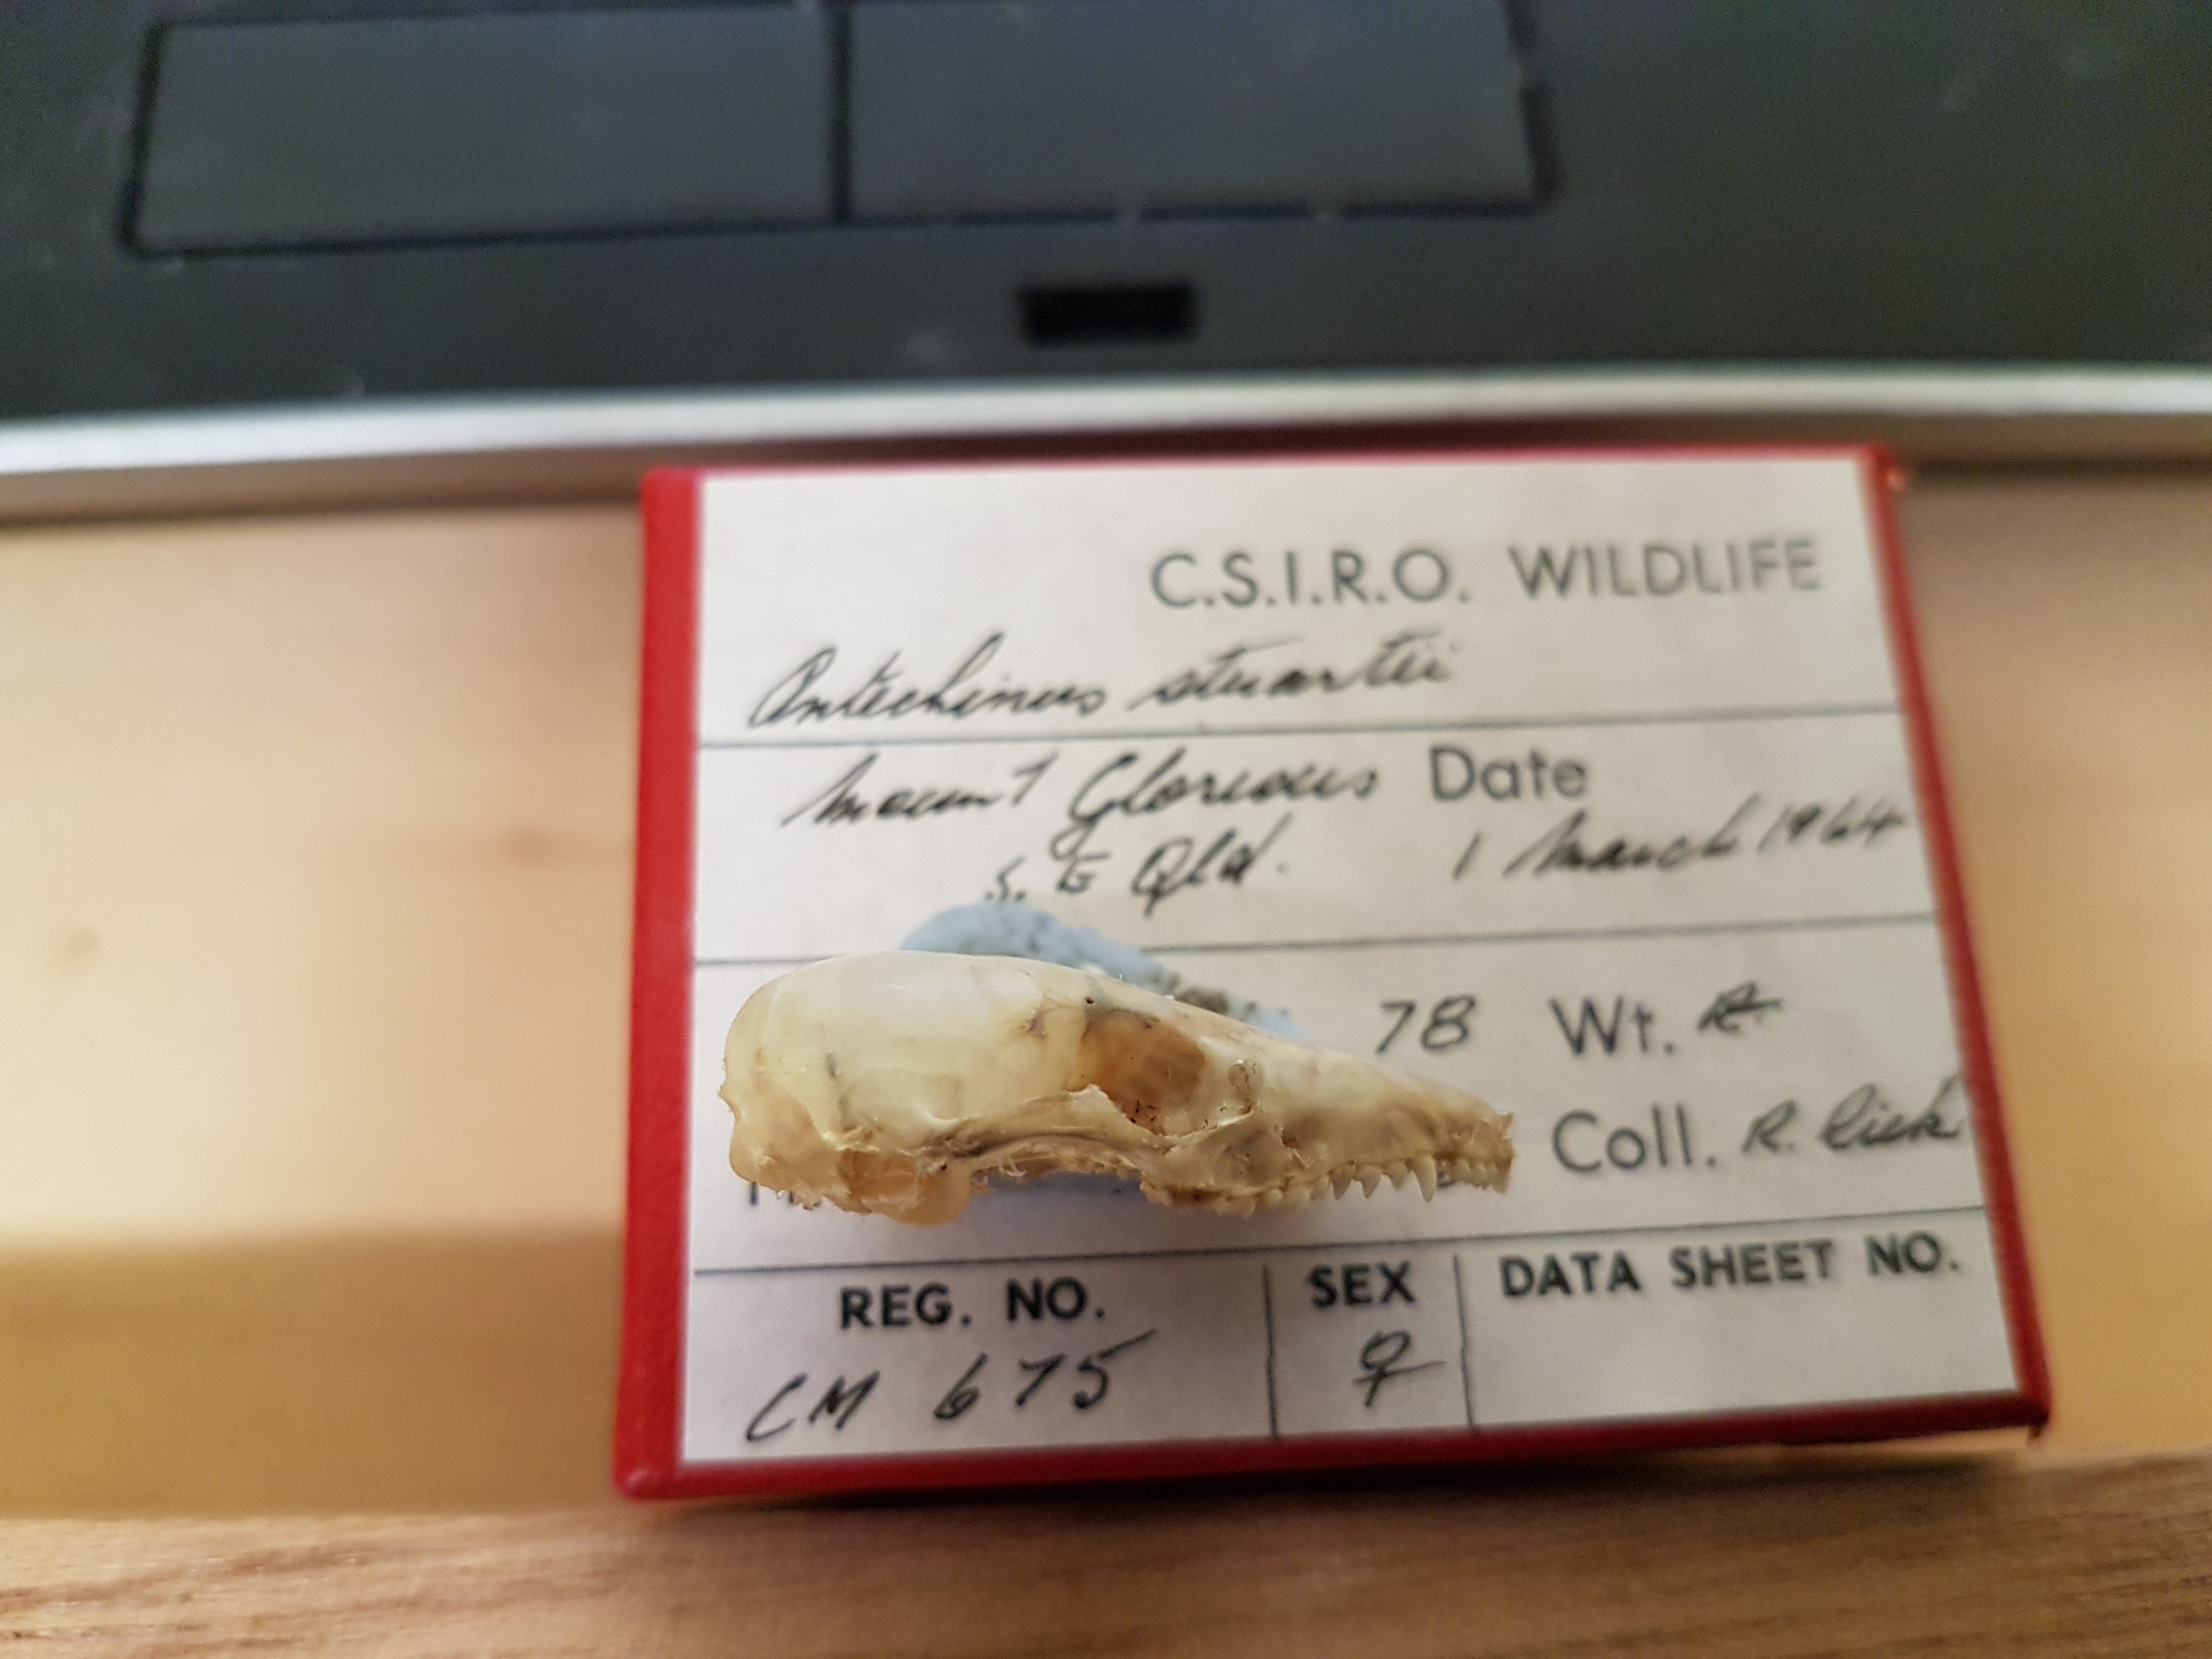 C.S.I.R.O. WILDLIFE
Antechinus stuartii
Mount Glorious Date
S. E Qld. 1 March 1964
78 Wt.
Coll. R.
REG. NO. SEX DATA SHEET NO.
CM 675 ♀